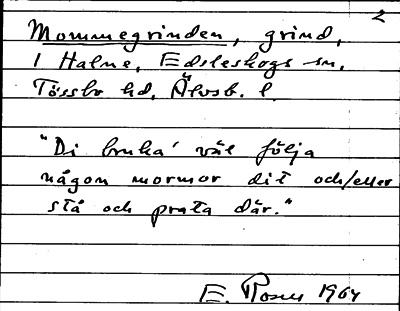 2
Mommegrinden, grind,
1 Halne, Edsleskogs sn,
Tössbo hd, Älvsb. l.
"Di bruka' väl följa
någon mormor dit och/eller
stå och prata där."
E. 1964